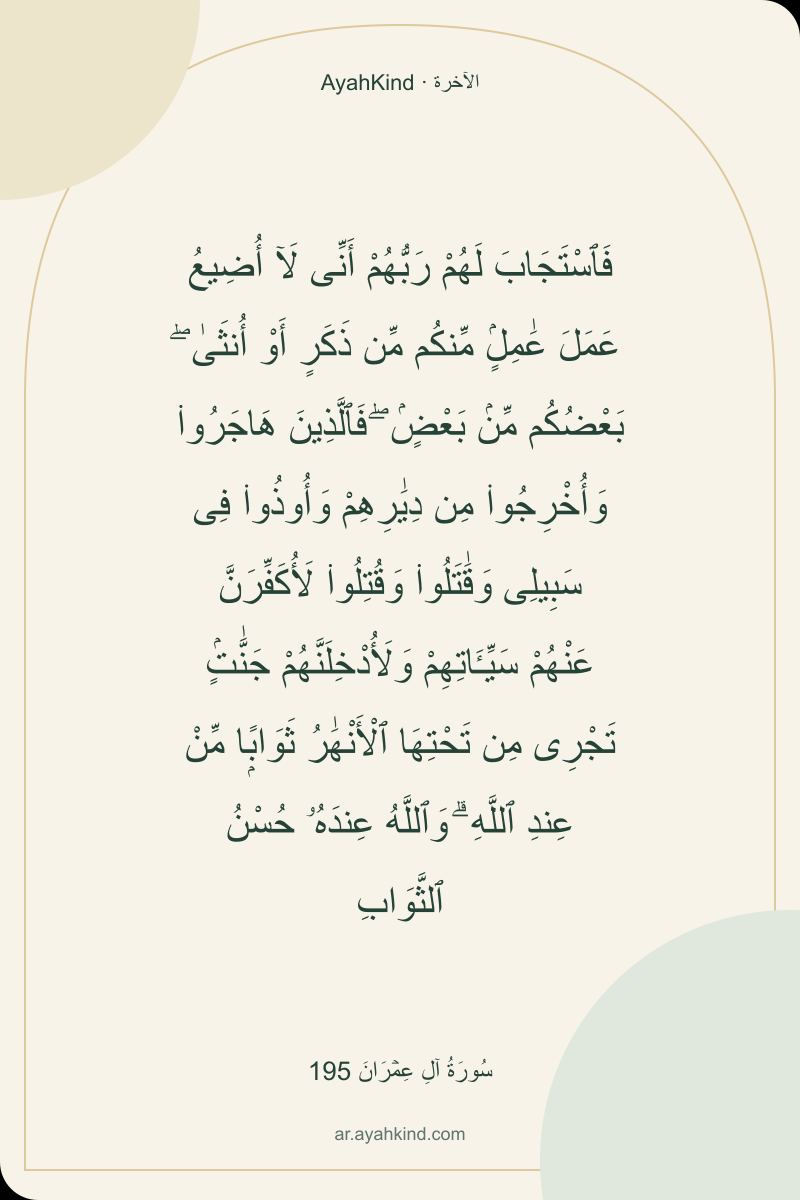 AyahKind · الآخرة
فَٱسْتَجَابَ لَهُمْ رَبُّهُمْ أَنِّى لَآ أُضِيعُ
عَمَلَ عَٰمِلٍۢ مِّنكُم مِّن ذَكَرٍ أَوْ أُنثَىٰ ۖ
بَعْضُكُم مِّنۢ بَعْضٍۢ ۖ فَٱلَّذِينَ هَاجَرُوا۟
وَأُخْرِجُوا۟ مِن دِيَٰرِهِمْ وَأُوذُوا۟ فِى
سَبِيلِى وَقَٰتَلُوا۟ وَقُتِلُوا۟ لَأُكَفِّرَنَّ
عَنْهُمْ سَيِّـَٔاتِهِمْ وَلَأُدْخِلَنَّهُمْ جَنَّٰتٍۢ
تَجْرِى مِن تَحْتِهَا ٱلْأَنْهَٰرُ ثَوَابًۭا مِّنْ
عِندِ ٱللَّهِ ۗ وَٱللَّهُ عِندَهُۥ حُسْنُ
ٱلثَّوَابِ
سُورَةُ آلِ عِمۡرَانَ 195
ar.ayahkind.com